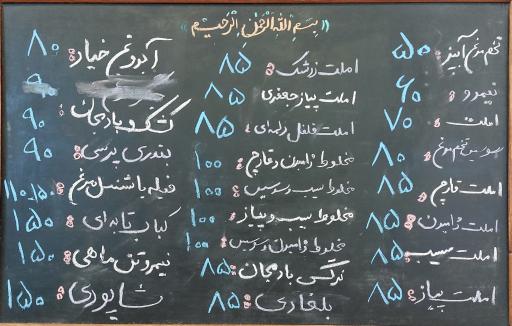 بسم الله الرحمن الرحیم
تخم مرغ آبپز: ۵۰
نیمرو: ۶۰
املت: ۷۰
سوسیس تخم مرغ: ۸۰
املت قارچ: ۸۵
املت ژامبون: ۸۵
املت سیب: ۸۵
املت پیاز: ۸۵
املت زرشک: ۸۵
املت پیاز جعفری: ۸۵
املت فلفل دلمه‌ای: ۸۵
مخلوط ژامبون و قارچ: ۱۰۰
مخلوط سیب و سوسیس: ۱۰۰
مخلوط سیب و پیاز: ۱۰۰
مخلوط ژامبون و سوسیس: ۱۰۰
نرگسی بادمجان: ۸۵
بلغاری: ۸۵
آبدوغ خیار: ۸۰
۹۰
کشک و بادمجان: ۹۰
بندری پرسی: ۹۰
فیله یا شنسل مرغ: ۱۵۰-۱۱۰
کباب تابه‌ای: ۱۵۰
نیمرو تن ماهی: ۱۵۰
شاپوری: ۱۵۰